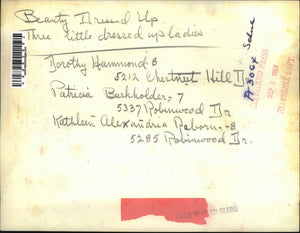 Beauty Dressed Up.
Three little dressed up ladies
Dorothy Hammond 8
5212 Chestnut Hill D
Patricia Burkholder - 7
5337 Robinwood Dr
Kathleen Alexandria Raborn - 8
5285 Robinwood Dr.